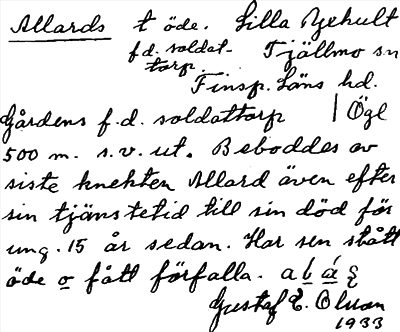 Allards t öde. Lilla Yxhult
f.d. soldat- Tjällmo sn
torp Finsp. läns hd.
Gårdens f.d. soldattorp | Ögl
500 m. s.v. ut. Beboddes av
siste knekten Allard även efter
sin tjänstetid till sin död för
ung. 15 år sedan. Har sen stått
öde o fått förfalla. a b á
Gustaf E. Olsson
1933